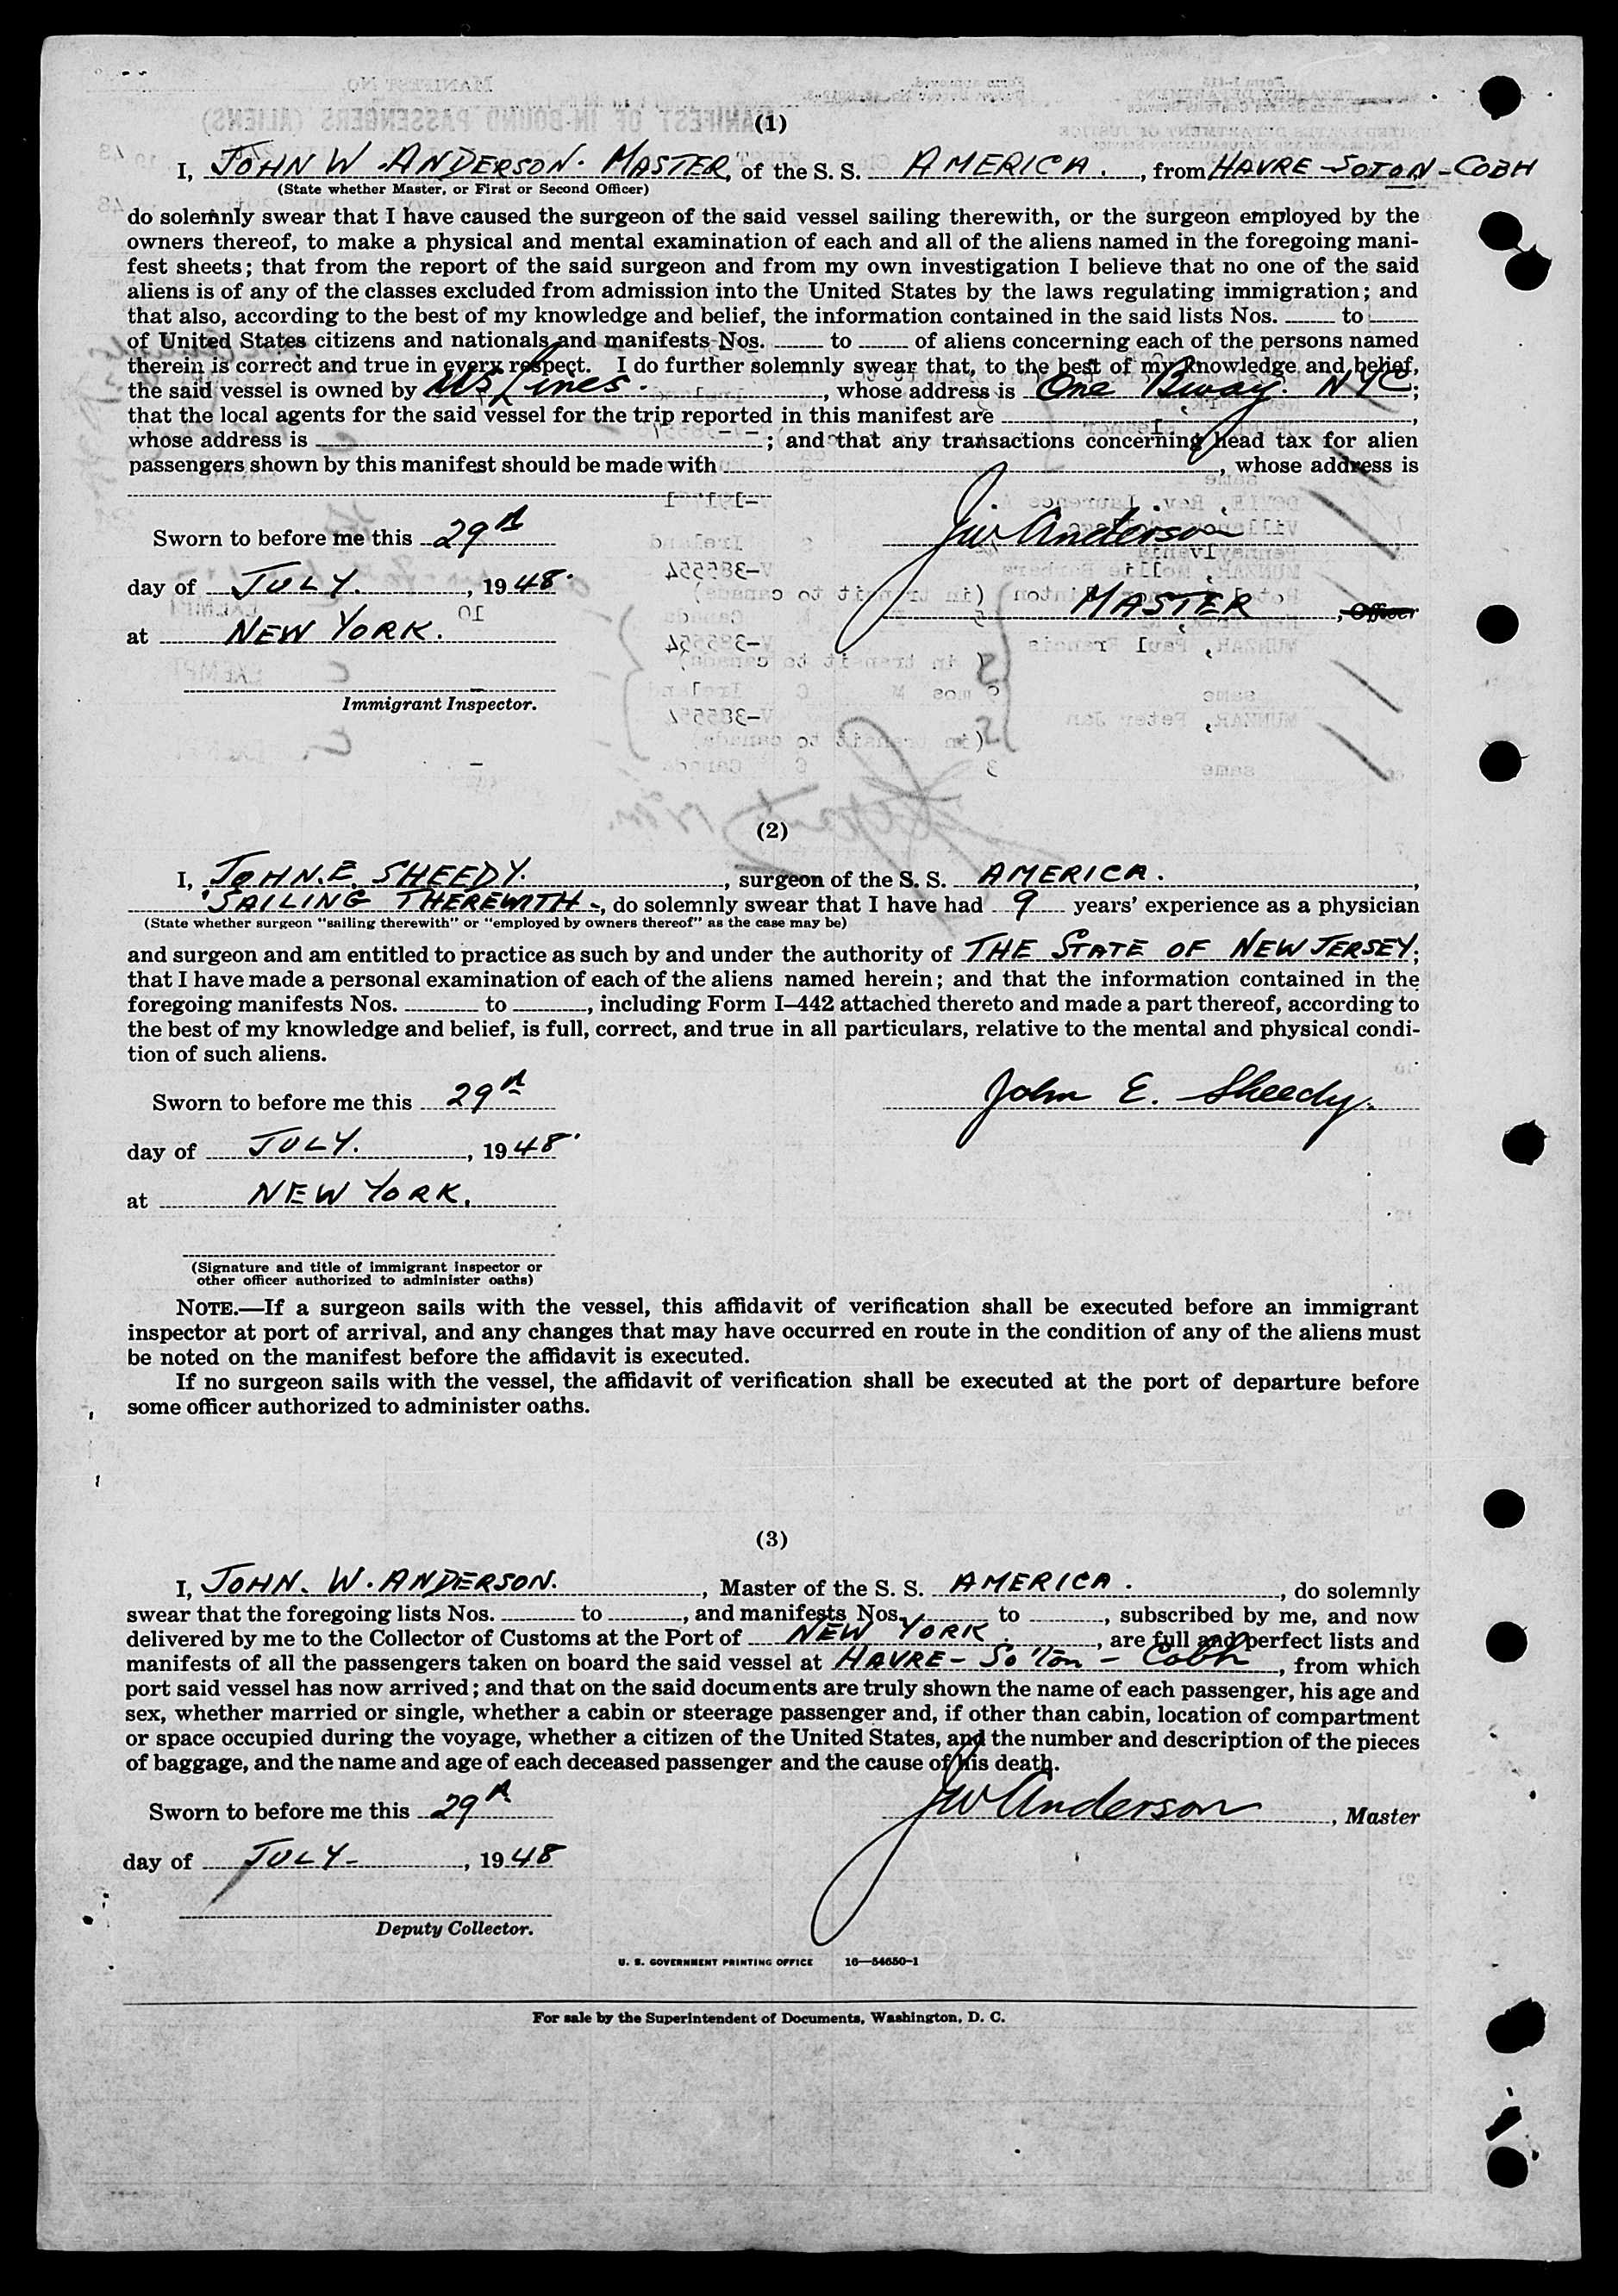 (1)
I, JOHN W. ANDERSON. MASTER, of the S. S. AMERICA., from HAVRE-SOTON-COBH
(State whether Master, or First or Second Officer)
do solemnly swear that I have caused the surgeon of the said vessel sailing therewith, or the surgeon employed by the
owners thereof, to make a physical and mental examination of each and all of the aliens named in the foregoing mani-
fest sheets; that from the report of the said surgeon and from my own investigation I believe that no one of the said
aliens is of any of the classes excluded from admission into the United States by the laws regulating immigration; and
that also, according to the best of my knowledge and belief, the information contained in the said lists Nos. to
of United States citizens and nationals and manifests Nos. to of aliens concerning each of the persons named
therein is correct and true in every respect. I do further solemnly swear that, to the best of my knowledge and belief,
the said vessel is owned by US Lines., whose address is One Bway. NYC;
that the local agents for the said vessel for the trip reported in this manifest are ,
whose address is ; and that any transactions concerning head tax for alien
passengers shown by this manifest should be made with , whose address is
Sworn to before me this 29th
JW Anderson
day of JULY., 1948.
MASTER, Officer
at NEW YORK.
Immigrant Inspector.
(2)
I, JOHN.E. SHEEDY., surgeon of the S. S. AMERICA.,
SAILING THEREWITH-, do solemnly swear that I have had 9 years' experience as a physician
(State whether surgeon "sailing therewith" or "employed by owners thereof" as the case may be)
and surgeon and am entitled to practice as such by and under the authority of THE STATE OF NEW JERSEY;
that I have made a personal examination of each of the aliens named herein; and that the information contained in the
foregoing manifests Nos. to , including Form I-442 attached thereto and made a part thereof, according to
the best of my knowledge and belief, is full, correct, and true in all particulars, relative to the mental and physical condi-
tion of such aliens.
Sworn to before me this 29th
John E. Sheedy.
day of JULY., 1948.
at NEW YORK.
(Signature and title of immigrant inspector or
other officer authorized to administer oaths)
NOTE.—If a surgeon sails with the vessel, this affidavit of verification shall be executed before an immigrant
inspector at port of arrival, and any changes that may have occurred en route in the condition of any of the aliens must
be noted on the manifest before the affidavit is executed.
If no surgeon sails with the vessel, the affidavit of verification shall be executed at the port of departure before
some officer authorized to administer oaths.
(3)
I, JOHN. W. ANDERSON., Master of the S. S. AMERICA., do solemnly
swear that the foregoing lists Nos. to , and manifests Nos. to , subscribed by me, and now
delivered by me to the Collector of Customs at the Port of NEW YORK., are full and perfect lists and
manifests of all the passengers taken on board the said vessel at HAVRE- So'ton - Cobh, from which
port said vessel has now arrived; and that on the said documents are truly shown the name of each passenger, his age and
sex, whether married or single, whether a cabin or steerage passenger and, if other than cabin, location of compartment
or space occupied during the voyage, whether a citizen of the United States, and the number and description of the pieces
of baggage, and the name and age of each deceased passenger and the cause of his death.
Sworn to before me this 29th
JW Anderson, Master
day of JULY-, 1948
Deputy Collector.
U. S. GOVERNMENT PRINTING OFFICE 16—54650-1
For sale by the Superintendent of Documents, Washington, D. C.